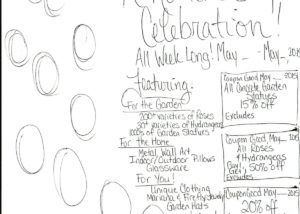 Celebration!
All Week Long! May __ - May __, 2015
Featuring:
For the Garden
200+ varieties of Roses
50+ varieties of Hydrangeas
1000's of Garden Statuary
For the Home
Metal Wall Art
Indoor/Outdoor Pillows
Glassware
For You!
Unique Clothing
Garden Hats
Coupon Good May __ 2015
All Concrete Garden
Statues
15% off
Excludes
Coupon Good May __
All Roses
Hydrangeas
50% off
Excludes
Coupon Good May __ 2015
20% off